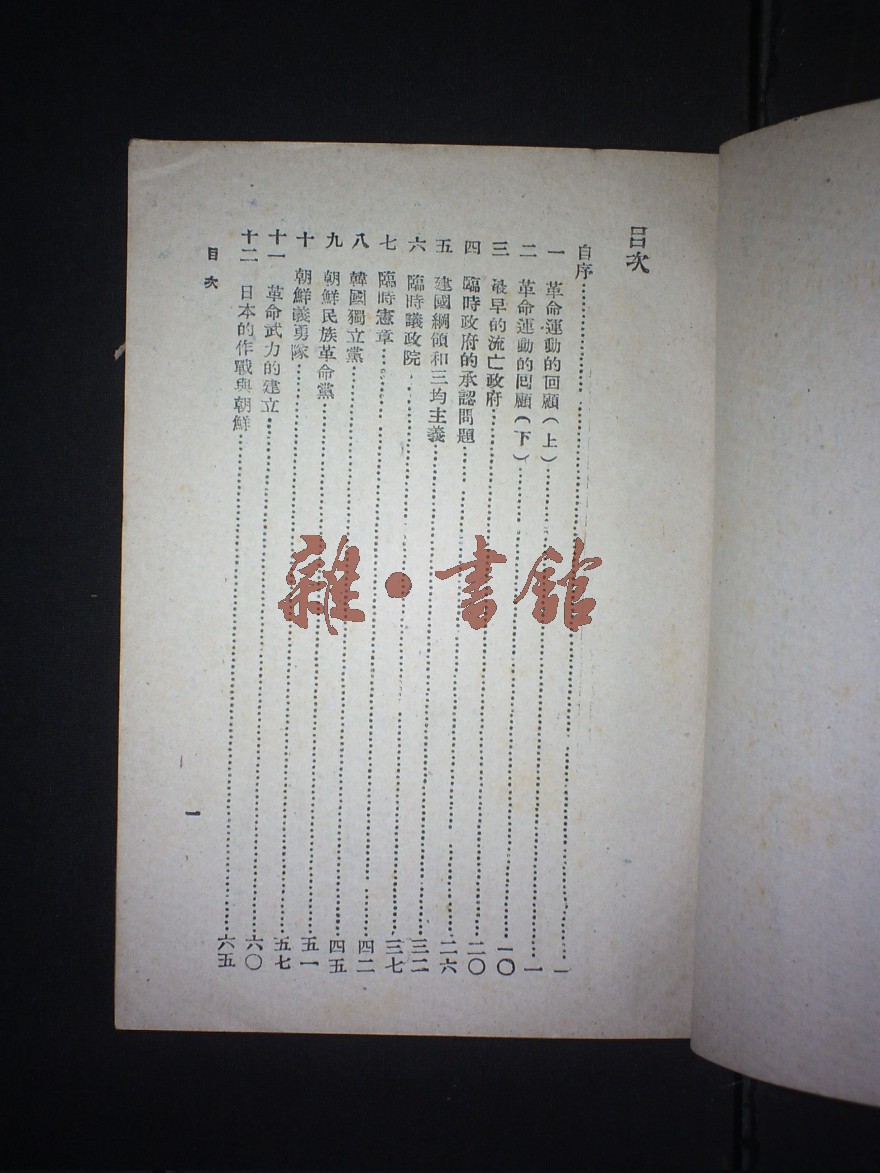 目次
自序……一
一 革命運動的回顧(上)……一
二 革命運動的回顧(下)……一〇
三 最早的流亡政府……二〇
四 臨時政府的承認問題……二六
五 建國綱領和三均主義……三二
六 臨時議政院……三七
七 臨時憲章……四二
八 韓國獨立黨……四五
九 朝鮮民族革命黨……五一
十 朝鮮義勇隊……五七
十一 革命武力的建立……六〇
十二 日本的作戰與朝鮮……六五
目次
一
雜·書館